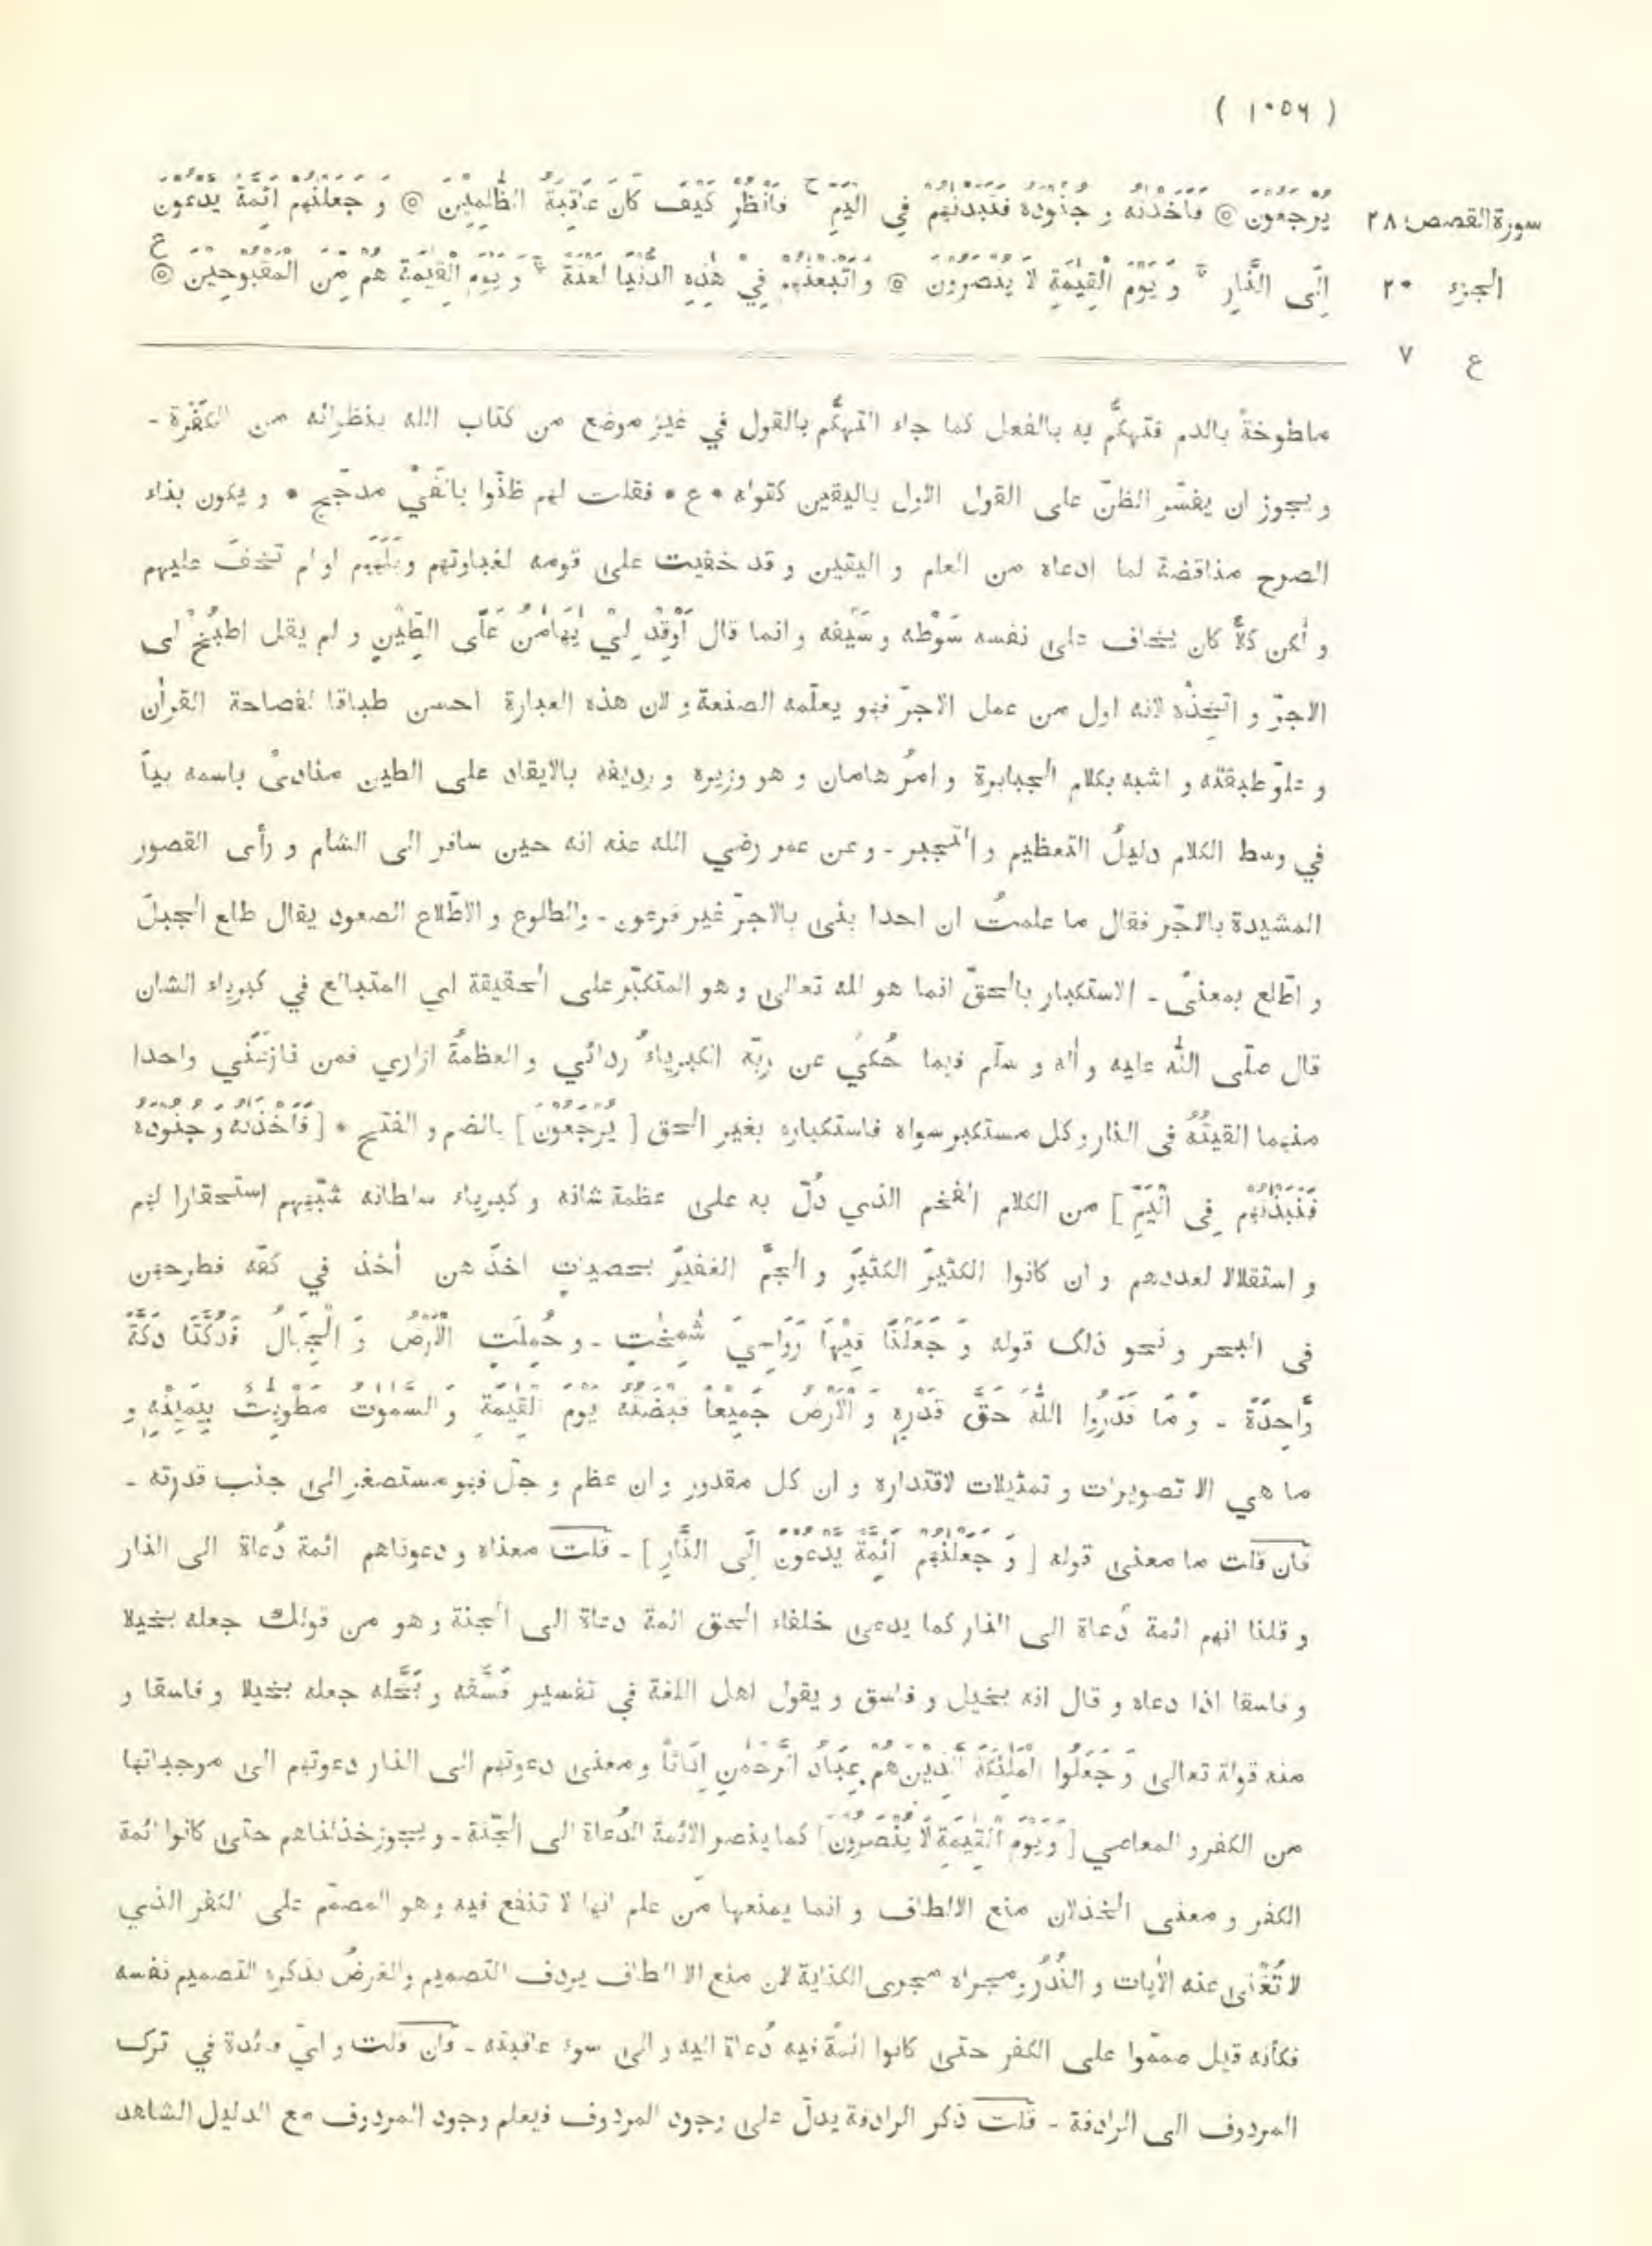 ( ١٠٥٦ )
سورة القصص ٢٨ يُرْجَعُوْنَ ◎ فَاَخَذْنٰهُ وَ جُنُوْدَهٗ فَنَبَذْنٰهُمْ فِي الْيَمِّ ج فَانْظُرْ كَيْفَ كَانَ عَاقِبَةُ الظّٰلِمِيْنَ ◎ وَ جَعَلْنٰهُمْ اَئِمَّةً يَّدْعُوْنَ
الجزء ٢٠ اِلَى النَّارِ وَ يَوْمَ الْقِيٰمَةِ لَا يُنْصَرُوْنَ ◎ وَاَتْبَعْنٰهُمْ فِيْ هٰذِهِ الدُّنْيَا لَعْنَةً وَ يَوْمَ الْقِيٰمَةِ هُمْ مِّنَ الْمَقْبُوْحِيْنَ ◎ ع
ع ٧
ملطوخةً بالدم فتهكّم به بالفعل كما جاء التهكّم بالقول في غير موضع من كتاب الله بنظرائه من الكفرة -
و يجوز ان يفسّر الظنّ على القول الاول باليقين كقوله * ع * فقلت لهم ظنّوا بالفَيْ مدجّج * و يكون بناء
الصرح مناقضة لما ادعاه من العلم و اليقين و قد خفيت على قومه لغباوتهم و بَلَههم او لم تخفَ عليهم
و لكن كلاً كان يخاف على نفسه سَوْطه و سَيْفه و انما قال اَوْقِدْ لِيْ يٰهَامٰنُ عَلَى الطِّيْنِ و لم يقل اطبُخْ لى
الاجرّ و اتّخِذْه لانه اول من عمل الاجرّ فهو يعلّمه الصنعة و لان هذه العبارة احسن طباقا لفصاحة القرأن
و علوّ طبقته و اشبه بكلام الجبابرة و امرُ هامان و هو وزيره و رديفه بالايقاد على الطين منادىً باسمه بياً
في وسط الكلام دليلُ التعظيم و التجبر - و عن عمر رضي الله عنه انه حين سافر الى الشام و رأى القصور
المشيدة بالاجّر فقال ما علمتُ ان احدا بنى بالاجرّ غير فرعون - والطلوع و الاطّلاع الصعود يقال طلع الجبلَ
و اطّلع بمعنىً - الاستكبار بالحقّ انما هو لله تعالى و هو المتكبّر على الحقيقة اي المتبالغ في كبرياء الشان
قال صلّى الله عليه و أله و سلّم فيما حُكيَ عن ربّه الكبرياءُ ردائي و العظمةُ ازاري فمن نازعَني واحدا
منهما القيتُهُ فى النار و كل مستكبر سواه فاستكباره بغير الحق [ يُرْجَعُوْنَ ] بالضم و الفتح * [ فَاَخَذْنٰهُ وَ جُنُوْدَهٗ
فَنَبَذْنٰهُمْ فِى الْيَمِّ ] من الكلام الفخم الذي دُلّ به على عظمة شانه و كبرياء سلطانه شبّههم استحقارا لهم
و استقلالا لعددهم و ان كانوا الكثيرَ الكثيرَ و الجمَّ الغفيرَ بحصيات اخذهن أخذ في كفّه فطرحهن
فى البحر و نحو ذلك قوله وَ جَعَلْنَا فِيْهَا رَوَاسِيَ شٰمِخٰتٍ - و حُمِلَتِ الْاَرْضُ وَ الْجِبَالُ فَدُكَّتَا دَكَّةً
وَّاحِدَةً - وَ مَا قَدَرُوا اللّٰهَ حَقَّ قَدْرِهٖ وَ الْاَرْضُ جَمِيْعًا قَبْضَتُهٗ يَوْمَ الْقِيٰمَةِ وَ السَّمٰوٰتُ مَطْوِيّٰتٌ بِيَمِيْنِهٖ و
ما هي الا تصويرات و تمثيلات لاقتداره و ان كل مقدور و ان عظم و جلّ فهو مستصغر الى جنب قدرته -
فان قلت ما معنى قوله [ وَ جَعَلْنٰهُمْ اَئِمَّةً يَّدْعُوْنَ اِلَى النَّارِ ] - قلت معناه و دعوناهم ائمة دُعاة الى النار
و قلنا انهم ائمة دُعاة الى النار كما يدعى خلفاء الحق ائمة دعاة الى الجنة و هو من قولك جعله بخيلا
و فاسقا اذا دعاه و قال انه بخيل و فاسق و يقول اهل اللغة في تفسير فَسَّقه و بَخَّله جعله بخيلا و فاسقا و
منه قوله تعالى وَ جَعَلُوا الْمَلٰئِكَةَ الَّذِيْنَ هُمْ عِبَادُ الرَّحْمٰنِ اِنَاثًا و معنى دعوتهم الى النار دعوتهم الى موجباتها
من الكفر و المعاصي [ وَ يَوْمَ الْقِيٰمَةِ لَا يُنْصَرُوْنَ ] كما ينصر الائمة الدُعاة الى الجنّة - و يجوز خذلناهم حتى كانوا ائمة
الكفر و معنى الخذلان منع الالطاف و انما يمنعها مَن علم انها لا تنفع فيه و هو المصمّم على الكفر الذي
لا تُغْنى عنه الأيات و النُذُر و مجراه مجرى الكناية لان منع الالطاف يردف التصميم والغرضُ بذكره التصميم نفسه
فكأنه قيل صمّموا على الكفر حتى كانوا ائمة فيه دُعاة اليه و الى سوء عاقبته - فان قلت و ايّ فائدة في ترك
المردوف الى الرادفة - قلت ذكر الرادفة يدلّ على وجود المردوف فيعلم وجود المردوف مع الدليل الشاهد